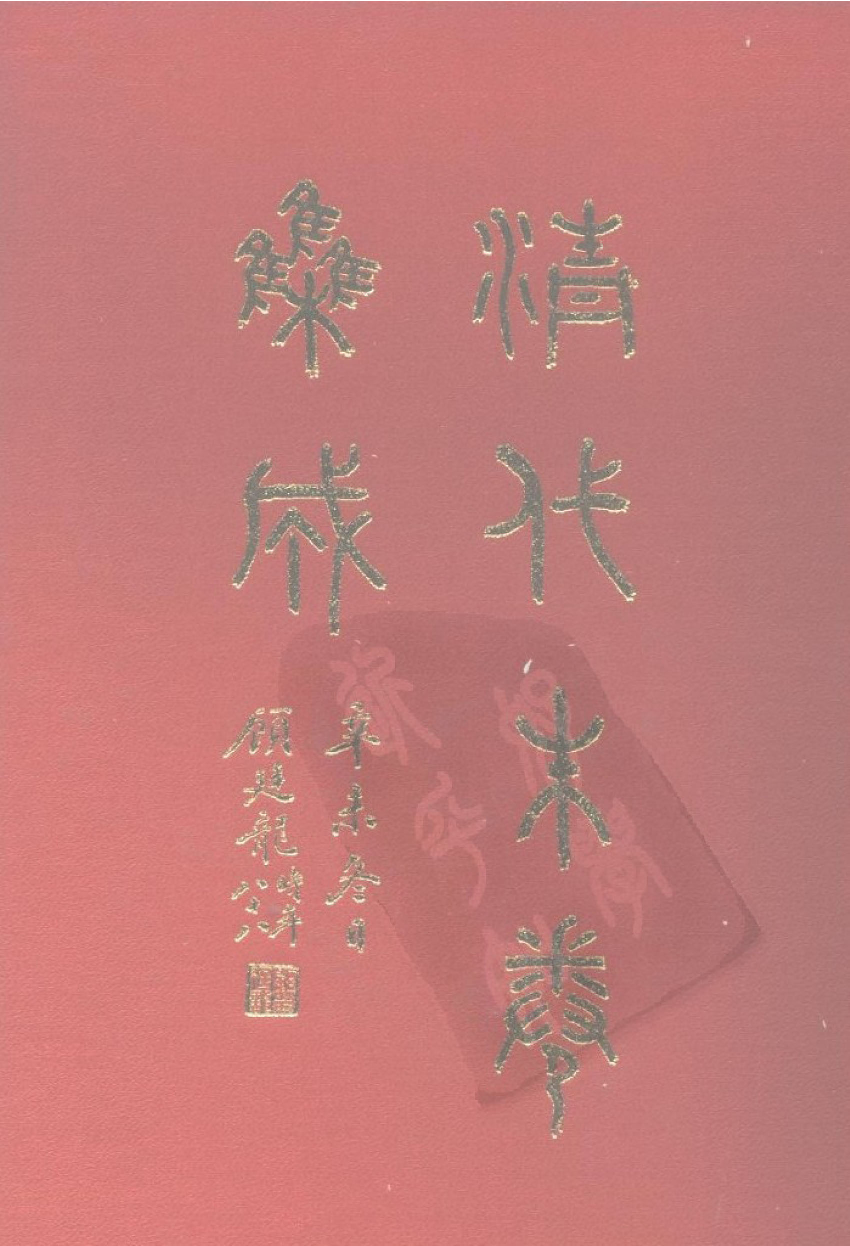 清代朱卷
集成
辛未冬日
顧廷龍時年
八十八